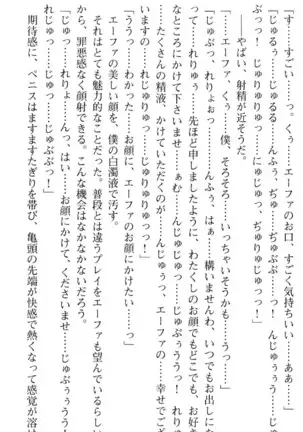 「す、すごい……っ。くぅ、エーファのお口、すごく気持ちいい……ああ……」
「じゅるぅ！　じゅるる……んふぅ、ぢゅっ、ぢゅぷぷ……んじゅぅぅ……じゅ
ぷっっ！　じゅりゅりゅっっ……にゅじゅっ、じゅりゅりゅっっ！」
――やばい、射精が近そうだ。
「エーファ、くぅ……僕、そろそろ……いっちゃいそうかも……うっ……」
「じゅぷっ、れりょぉっ……んふぅ、はぁ……構いませんわ、いつでもお出しにな
って……ぢゅぅぅっ、れりゅ……先ほど申しましたように、わたくしのお顔でもどこでも、お好き
なところにかけて下さいませ……ぁむ……んじゅじゅっ……じゅぷぅううっ！　れりゅ
……たくさんの精液、かけていただくのが、……んじゅぅっ、エーファの……幸せでござ
いますの……れりょっ……じゅりゅりゅっっ！」
「ううっ……わかった……お顔に、エーファのお顔にかけたい……っ」
エーファの美しい顔を、僕の白濁液で汚す。
それはとても魅力的なことだった。普段とは違うプレイをエーファも望んでいるらしい
から、罪悪感なく顔射できる。こんな機会はなかなかないだろう。
「じゅっ……れりょ……んっ、はい……お顔にかけて、くださいませ……じゅぷぅぅうう！
じゅっ……れりゅっ……じゅぷぷっ！」
期待感に、ペニスはますますたぎりを帯び、亀頭の先端が快感で熱くなって感覚が溶け